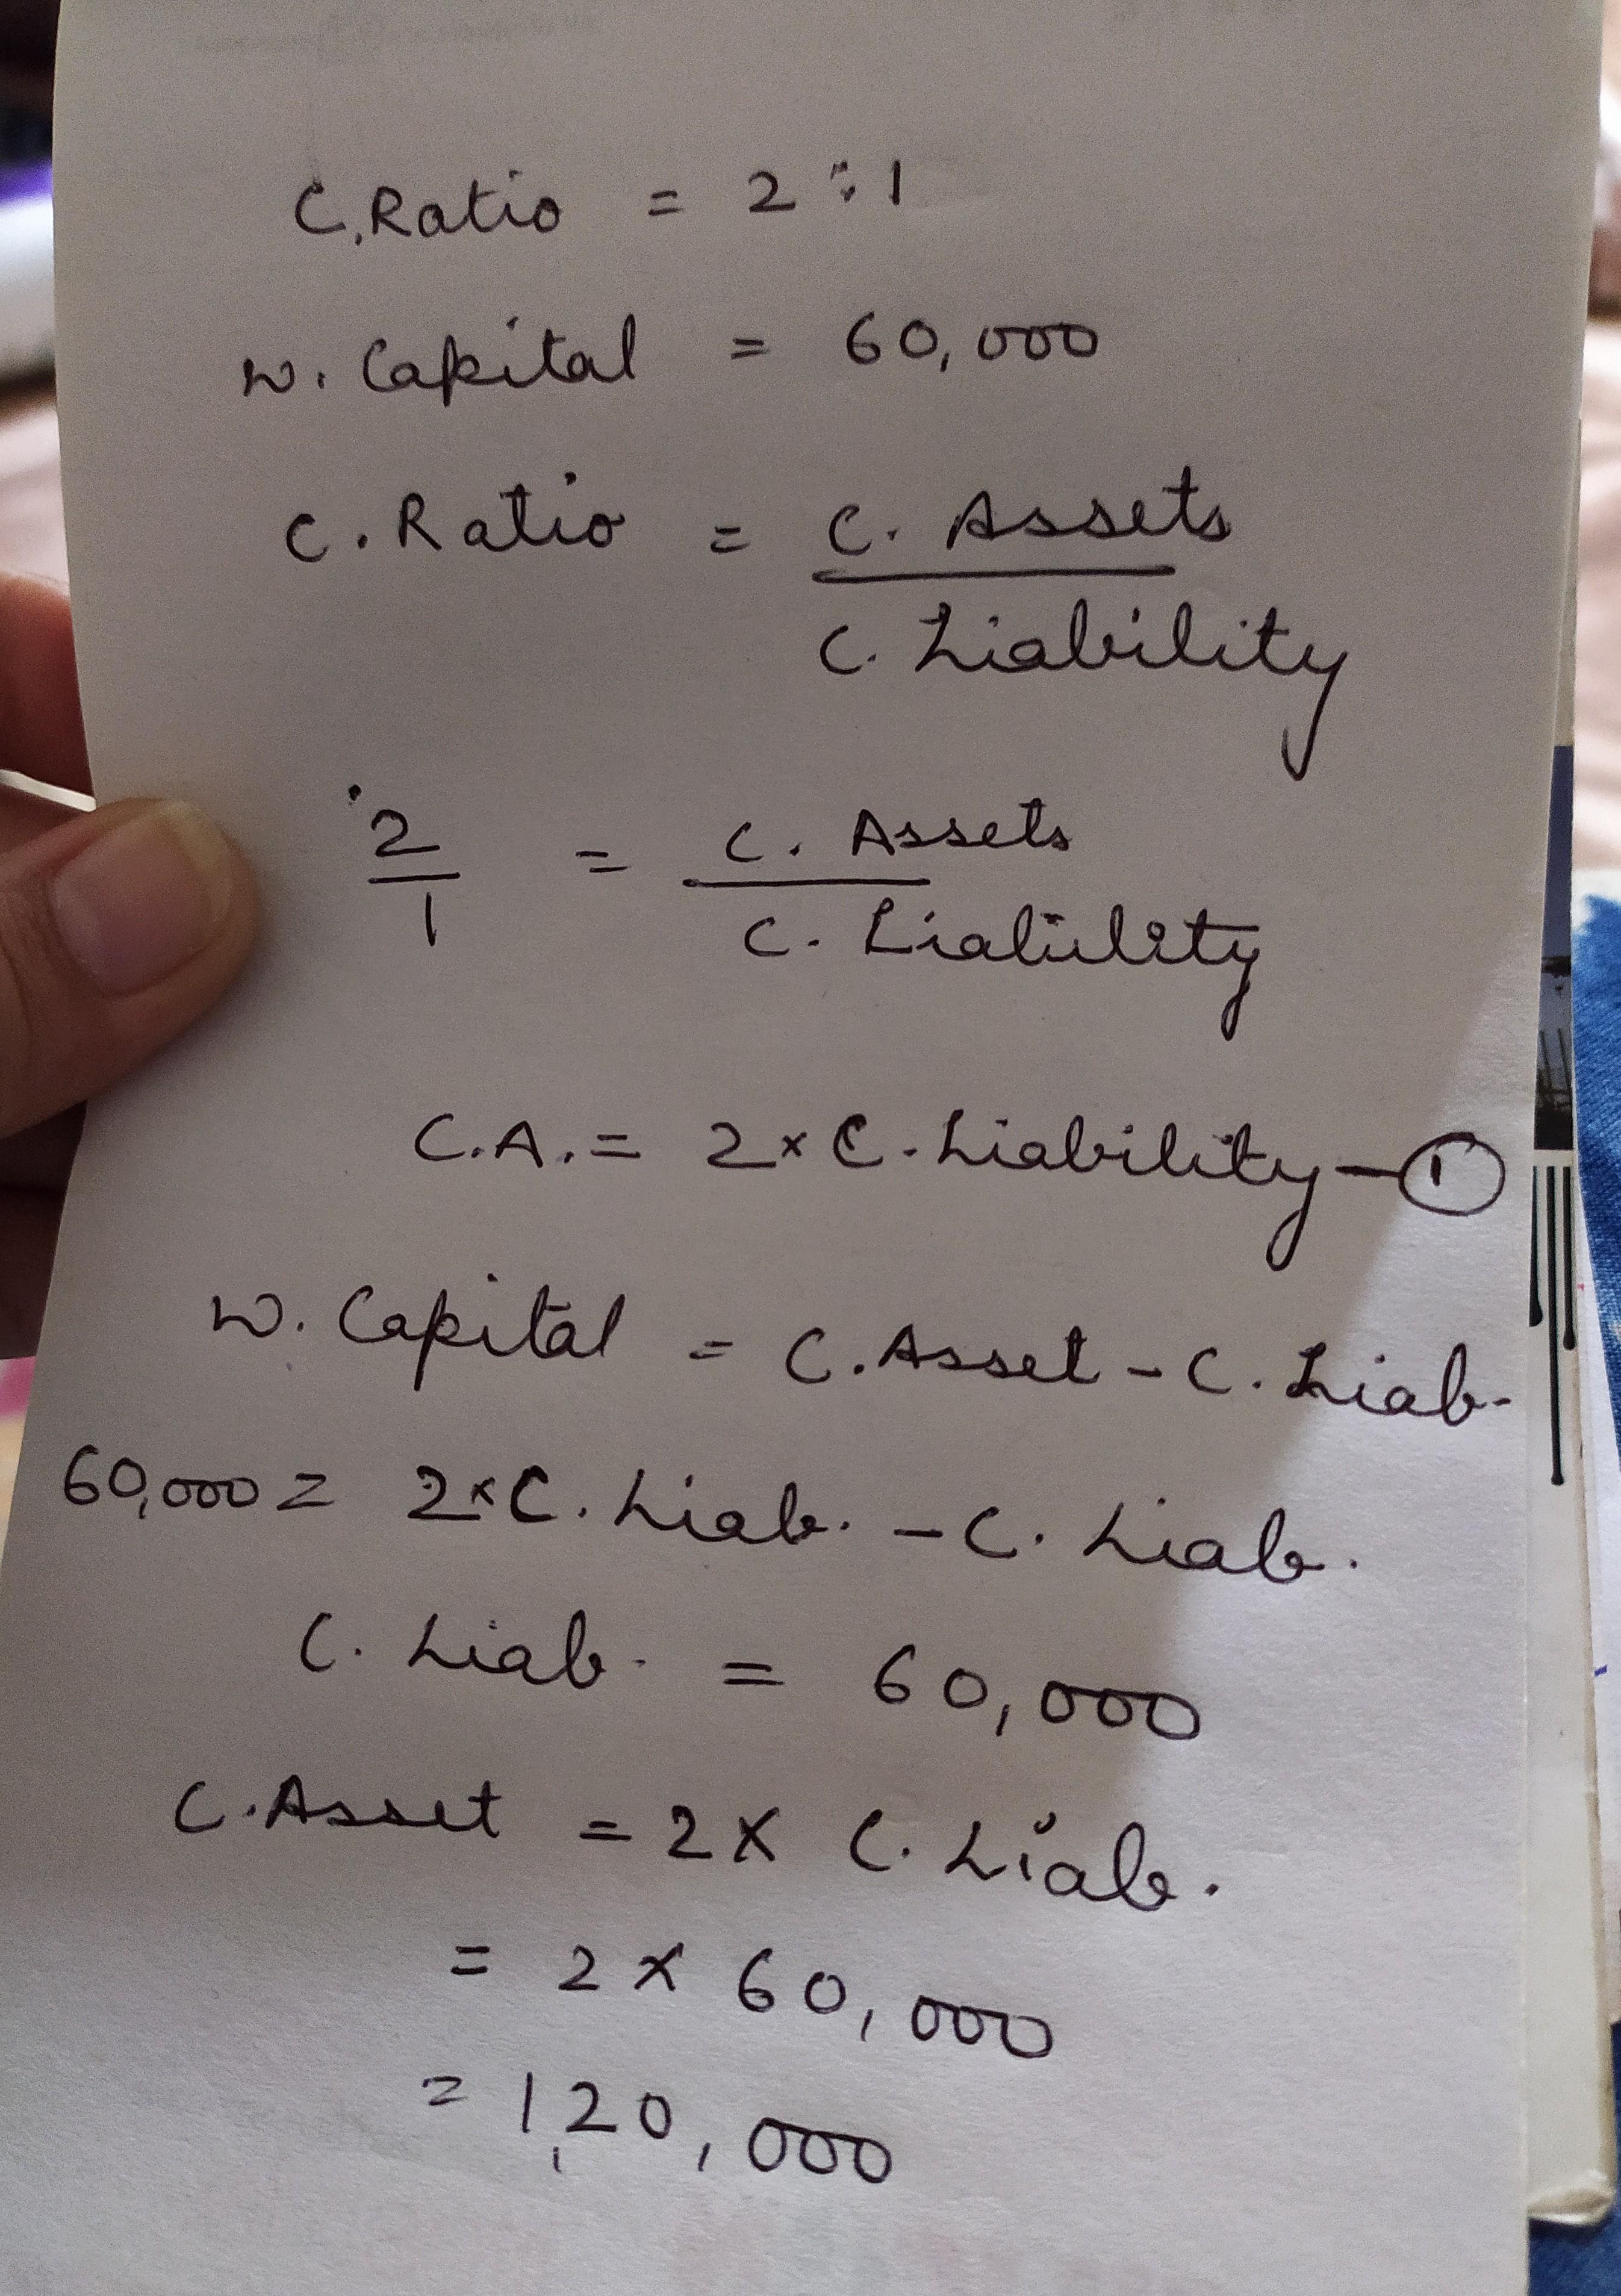 C. Ratio = 2 : 1
W. Capital = 60,000
C. Ratio = C. Assets
C. Liability
2 = C. Assets
1 C. Liability
C.A. = 2 × C. Liability — ①
W. Capital = C. Asset - C. Liab.
60,000 = 2 × C. Liab. - C. Liab.
C. Liab. = 60,000
C. Asset = 2 × C. Liab.
= 2 × 60,000
= 1,20,000